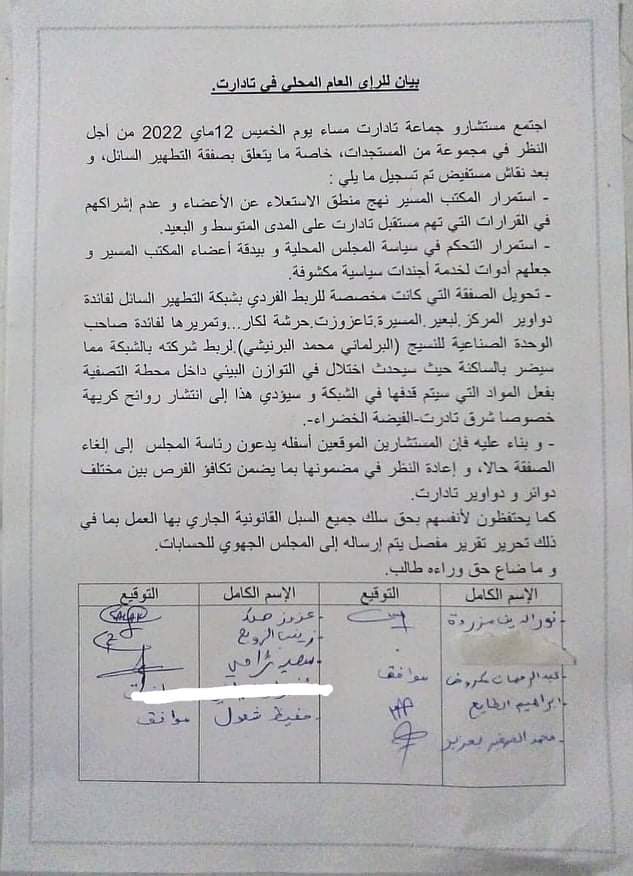 بيان للراي العام المحلي في تادارت.
اجتمع مستشارو جماعة تادارت مساء يوم الخميس 12ماي 2022 من أجل
النظر في مجموعة من المستجدات، خاصة ما يتعلق بصفقة التطهير السائل، و
بعد نقاش مستفيض تم تسجيل ما يلي :
- استمرار المكتب المسير نهج منطق الاستعلاء عن الأعضاء و عدم إشراكهم
في القرارات التي تهم مستقبل تادارت على المدى المتوسط و البعيد.
- استمرار التحكم في سياسة المجلس المحلية و بيدقة أعضاء المكتب المسير و
جعلهم أدوات لخدمة أجندات سياسية مكشوفة.
- تحويل الصفقة التي كانت مخصصة للربط الفردي بشبكة التطهير السائل لفائدة
دواوير المركز.لبعير.المسيرة.تاعزوزت.حرشة لكار...وتمريرها لفائدة صاحب
الوحدة الصناعية للنسيج (البرلماني محمد البرنيشي).لربط شركته بالشبكة مما
سيضر بالساكنة حيث سيحدث اختلال في التوازن البيني داخل محطة التصفية
بفعل المواد التي سيتم قدفها في الشبكة و سيؤدي هذا إلى انتشار روائح كريهة
خصوصا شرق تادرت-الفيضة الخضراء-.
- و بناء عليه فإن المستشارين الموقعين أسفله يدعون رئاسة المجلس إلى إلغاء
الصفقة حالا، و إعادة النظر في مضمونها بما يضمن تكافؤ الفرص بين مختلف
دوائر و دواوير تادارت.
كما يحتفظون لأنفسهم بحق سلك جميع السبل القانونية الجاري بها العمل بما في
ذلك تحرير تقرير مفصل يتم إرساله إلى المجلس الجهوي للحسابات.
و ما ضاع حق وراءه طالب.
الإسم الكامل التوقيع الإسم الكامل التوقيع
- نور الدين مزردة - عزوز
- زينب
- سعيد
- عبد الرحمان موافق
- ابراهيم الطايع - حفيظ شعول موافق
- محمد الصغير بعزيز